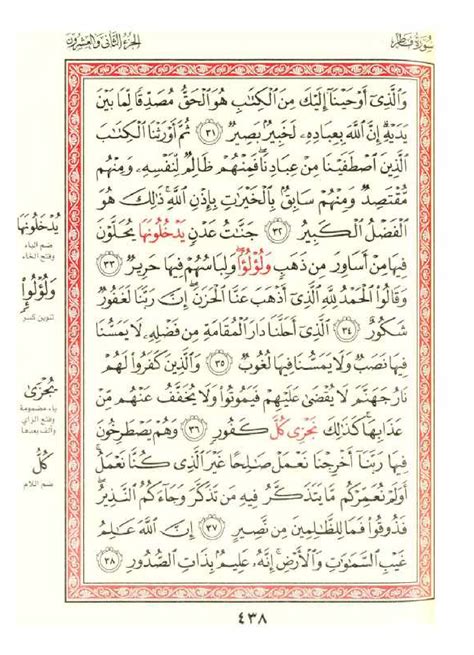 سُورَةُ فَاطِر
الجزء الثاني والعشرون
وَالَّذِىٓ أَوْحَيْنَآ إِلَيْكَ مِنَ ٱلْكِتَٰبِ هُوَ ٱلْحَقُّ مُصَدِّقًا لِّمَا بَيْنَ
يَدَيْهِ إِنَّ ٱللَّهَ بِعِبَادِهِۦ لَخَبِيرٌۢ بَصِيرٌ ٣١ ثُمَّ أَوْرَثْنَا ٱلْكِتَٰبَ
ٱلَّذِينَ ٱصْطَفَيْنَا مِنْ عِبَادِنَا فَمِنْهُمْ ظَالِمٌ لِّنَفْسِهِۦ وَمِنْهُم
مُّقْتَصِدٌ وَمِنْهُمْ سَابِقٌۢ بِٱلْخَيْرَٰتِ بِإِذْنِ ٱللَّهِ ذَٰلِكَ هُوَ
ٱلْفَضْلُ ٱلْكَبِيرُ ٣٢ جَنَّٰتُ عَدْنٍ يَدْخُلُونَهَا يُحَلَّوْنَ
فِيهَا مِنْ أَسَاوِرَ مِن ذَهَبٍ وَلُؤْلُؤًا وَلِبَاسُهُمْ فِيهَا حَرِيرٌ ٣٣
وَقَالُوا۟ ٱلْحَمْدُ لِلَّهِ ٱلَّذِىٓ أَذْهَبَ عَنَّا ٱلْحَزَنَ إِنَّ رَبَّنَا لَغَفُورٌ
شَكُورٌ ٣٤ ٱلَّذِىٓ أَحَلَّنَا دَارَ ٱلْمُقَامَةِ مِن فَضْلِهِۦ لَا يَمَسُّنَا
فِيهَا نَصَبٌ وَلَا يَمَسُّنَا فِيهَا لُغُوبٌ ٣٥ وَٱلَّذِينَ كَفَرُوا۟ لَهُمْ
نَارُ جَهَنَّمَ لَا يُقْضَىٰ عَلَيْهِمْ فَيَمُوتُوا۟ وَلَا يُخَفَّفُ عَنْهُم مِّنْ
عَذَابِهَا كَذَٰلِكَ نَجْزِى كُلَّ كَفُورٍ ٣٦ وَهُمْ يَصْطَرِخُونَ
فِيهَا رَبَّنَآ أَخْرِجْنَا نَعْمَلْ صَٰلِحًا غَيْرَ ٱلَّذِى كُنَّا نَعْمَلُ
أَوَلَمْ نُعَمِّرْكُم مَّا يَتَذَكَّرُ فِيهِ مَن تَذَكَّرَ وَجَآءَكُمُ ٱلنَّذِيرُ
فَذُوقُوا۟ فَمَا لِلظَّٰلِمِينَ مِن نَّصِيرٍ ٣٧ إِنَّ ٱللَّهَ عَٰلِمُ
غَيْبِ ٱلسَّمَٰوَٰتِ وَٱلْأَرْضِ إِنَّهُۥ عَلِيمٌۢ بِذَاتِ ٱلصُّدُورِ ٣٨
يُدْخَلُونَهَا
ضم الياء
وفتح الخاء
وَلُؤْلُؤٍا
تنوين كسر
يُجْزَىٰ
ياء مضمومة
وفتح الزاي
وألف بعدها
كُلُّ
ضم اللام
٤٣٨